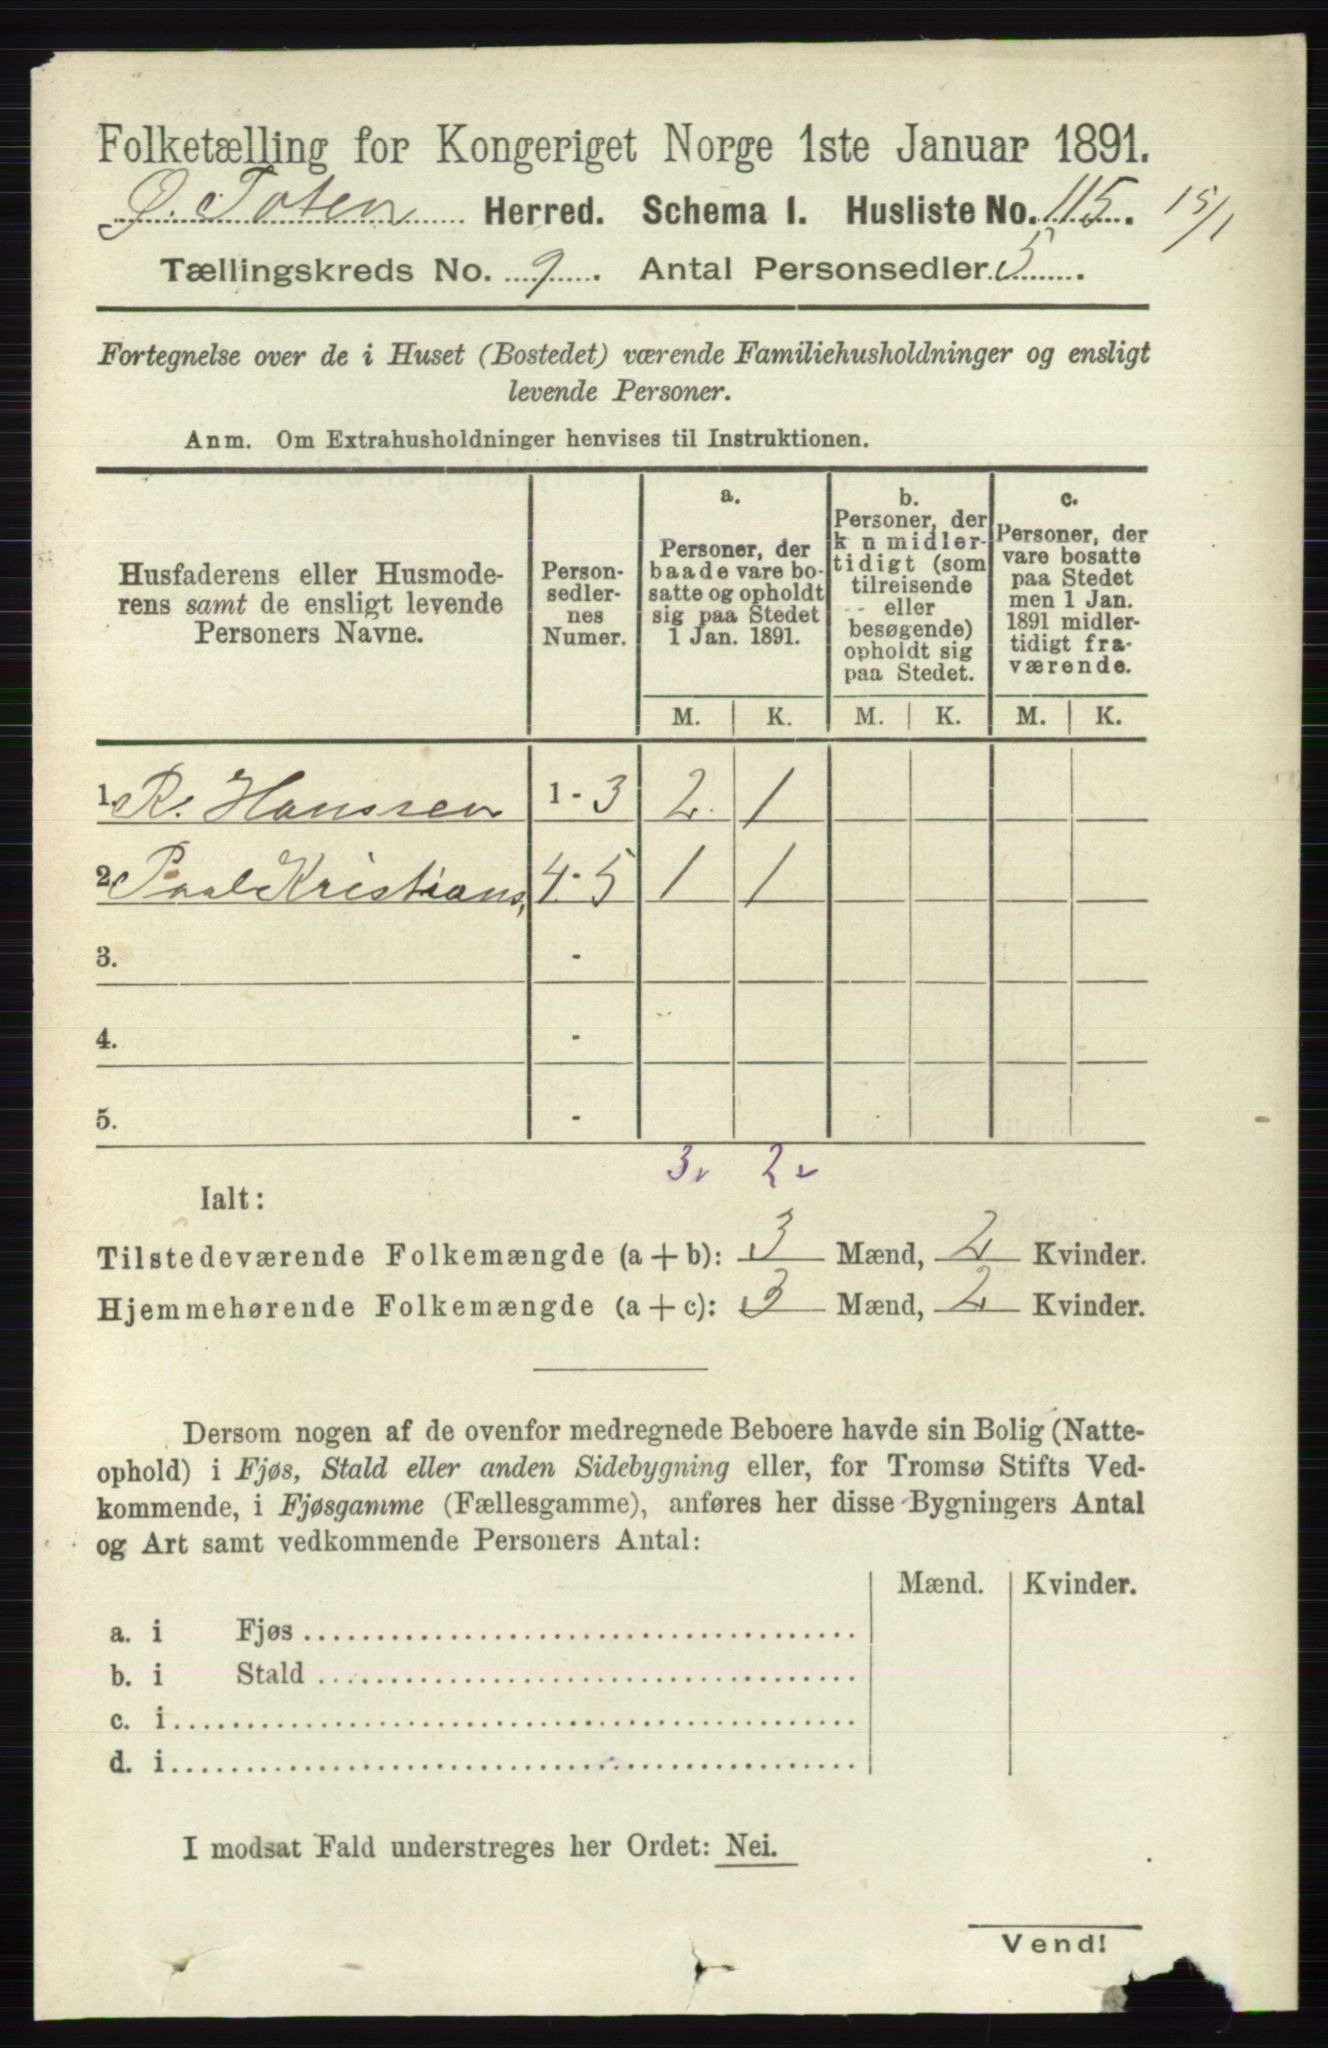 Folketælling for Kongeriget Norge 1ste Januar 1891.
Ø. Toten Herred. Schema 1. Husliste No. 115. 15/1
Tællingskreds No. 9. Antal Personsedler 5.
Fortegnelse over de i Huset (Bostedet) værende Familiehusholdninger og ensligt
levende Personer.
Anm. Om Extrahusholdninger henvises til Instruktionen.
Husfaderens eller Husmode-
rens samt de ensligt levende
Personers Navne.
Person-
sedler-
nes
Numer.
a.
Personer, der
baade vare bo-
satte og opholdt
sig paa Stedet
1 Jan. 1891.
b.
Personer, der
k n midler-
tidigt (som
tilreisende
eller
besøgende)
opholdt sig
paa Stedet.
c.
Personer, der
vare bosatte
paa Stedet
men 1 Jan.
1891 midler-
tidigt fra-
værende.
M. K. M. K. M. K.
1. R. Hanssen 1 - 3 2 1
2. Paal Kristians, 4 - 5 1 1
3. -
4. -
5. -
3 2
Ialt:
Tilstedeværende Folkemængde (a + b): 3 Mænd, 2 Kvinder.
Hjemmehørende Folkemængde (a + c): 3 Mænd, 2 Kvinder.
Dersom nogen af de ovenfor medregnede Beboere havde sin Bolig (Natte-
ophold) i Fjøs, Stald eller anden Sidebygning eller, for Tromsø Stifts Ved-
kommende, i Fjøsgamme (Fællesgamme), anføres her disse Bygningers Antal
og Art samt vedkommende Personers Antal:
Mænd. Kvinder.
a. i Fjøs
b. i Stald
c. i
d. i
I modsat Fald understreges her Ordet: Nei.
Vend!